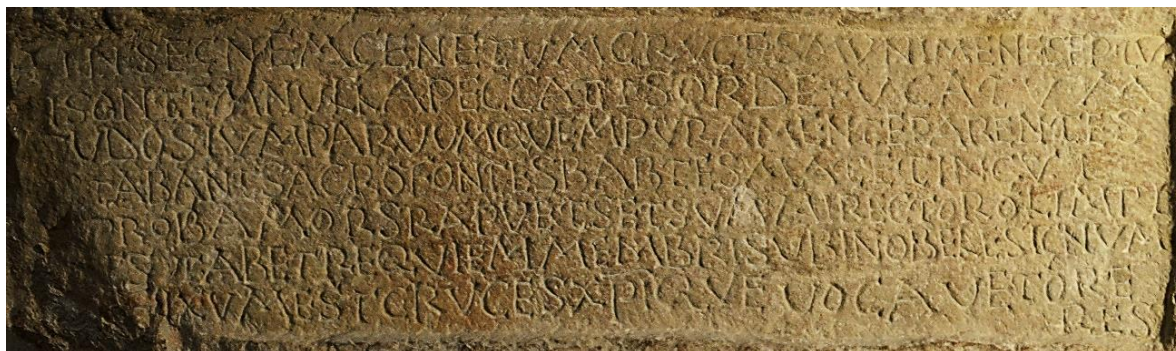 INSEGNEM GENETUM CRUCES MVNIMENE SEPTU
INSONTEM NULLA PECCATI SORDE FUCATUM
UDOSIUM PARUUM QUEM PURA MENTE PARENTES
TABANT SACRO FONTES BABTESMATE TINGUI
PROBA MORS RAPUET SET SUMMI RECTOR OLIMPI
STABET REQUIEM MEMBRIS UBI NOBELE SIGNUM
IXUM EST CRUCES XPIQVE UOCAUETOR E
RES